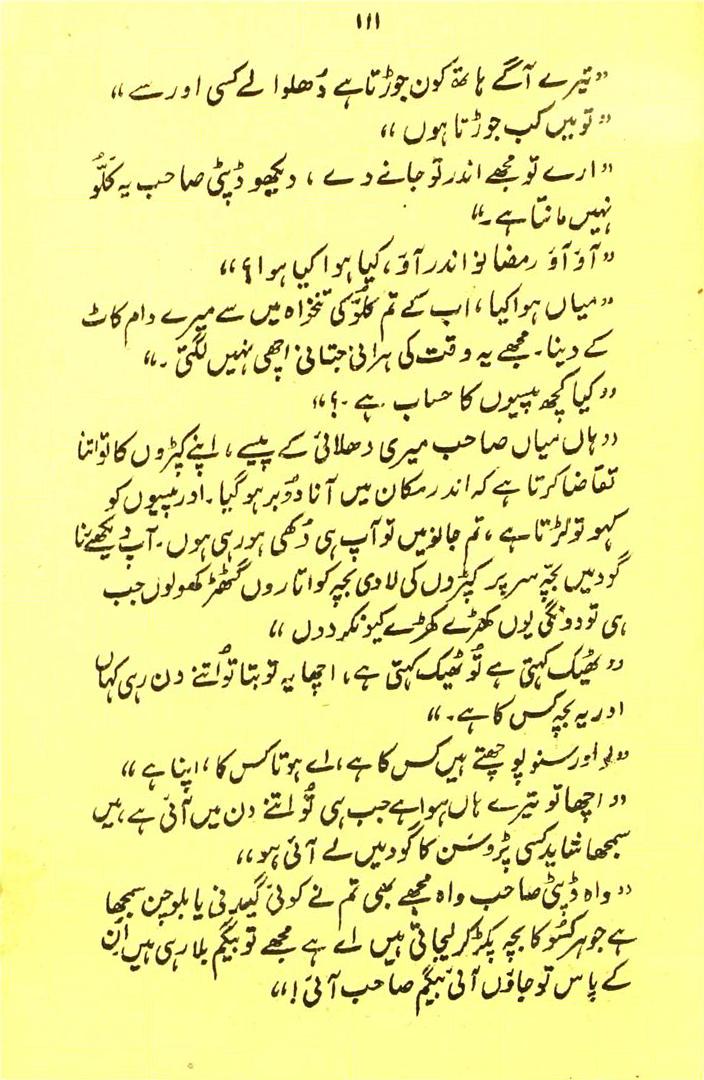 ۱۱۱
”تیرے آگے ہاتھ کون جوڑتا ہے دُھلوا لے کسی اور سے“
”تو میں کب جوڑتا ہوں“
”ارے تو مجھے اندر تو جانے دے، دیکھو ڈپٹی صاحب یہ کَلُّو
نہیں مانتا ہے۔“
”آؤ آؤ رمضانو اندر آؤ، کیا ہوا کیا ہوا؟“
”میاں ہوا کیا، اب کے تم کلّو کی تنخواہ میں سے میرے دام کاٹ
کے دینا۔ مجھے یہ وقت کی ہرانی جتانی اچھی نہیں لگتی۔“
”کیا کچھ پیسوں کا حساب ہے۔؟“
”ہاں میاں صاحب میری دھلائی کے پیسے، اپنے کپڑوں کا تو اتنا
تقاضا کرتا ہے کہ اندر مکان میں آنا دُوبر ہو گیا۔ اور پیسوں کو
کہو تو لڑتا ہے، تم جانو میں تو آپ ہی دُکھی ہو رہی ہوں۔ آپ دیکھئے نا
گود میں بچّہ سر پر کپڑوں کی لادی بچہ کو اتاروں گٹھڑ کھولوں جب
ہی تو دونگی یوں کھڑے کھڑے کیونکر دوں“
”ٹھیک کہتی ہے تُو ٹھیک کہتی ہے، اچھا یہ تو بتا تُو اتنے دن رہی کہاں
اور یہ بچہ کس کا ہے۔“
”اور سنو پوچھتے ہیں کس کا ہے، اے ہوتا کس کا، اپنا ہے“
”اچھا تو تیرے ہاں ہوا ہے جب ہی تُو اتنے دن میں آئی ہے، میں
سمجھا شاید کسی پڑوسَن کا گود میں لے آئی ہو“
”واہ ڈپٹی صاحب واہ مجھے بھی تم نے کوئی گیدنی یا بلوچن سمجھا
ہے جو ہر کسُو کا بچہ پکڑ کر لیجاتی ہیں اے ہے مجھے تو بیگم بلا رہی ہیں اُن
کے پاس تو جاؤں آئی بیگم صاحب آئی!“